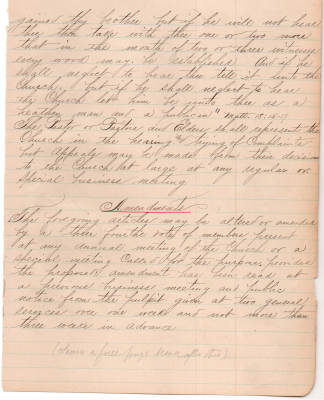 gained thy brother. but if he will not hear
thee then take with thee one or two more
that in the mouth of two or three witnesses
every word may be established. And if he
shall neglect to hear them tell it unto the
Church, but if he shall neglect to hear
the Church let him be unto thee as a
heathen man and a publican" Math. 18-15-17
The Pastor or Pastors and Elders shall represent the
Church in the hearing & trying of Complaints
but Appeals may be made from their decision
to the Church at large at any regular or
special business meeting
Amendments
The forgoing articles may be altered or amended
by a three fourth vote of members present
at any annual meeting of the Church or a
special meeting Called for the purpose, provided
the proposed amendment has been read at
a previous business meeting and public
notice from the pulpit given at two general
services over one week and not more than
three weeks in advance
(Leave a full page blank after this)